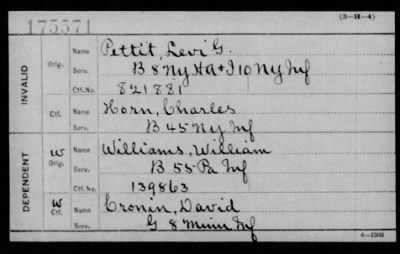 175571
(3-H-4)
INVALID
Orig.
Name Pettit, Levi G.
Serv. B 8 Ny HA & I 10 Ny Inf
Ctf. No. 821881
Ctf.
Name Horn, Charles
Serv. B 45 Ny Inf
DEPENDENT
W
Orig.
Name Williams, William
Serv. B 55 Pa Inf
Ctf. No. 139863
W
Ctf.
Name Cronin, David
Serv. G 8 Minn Inf